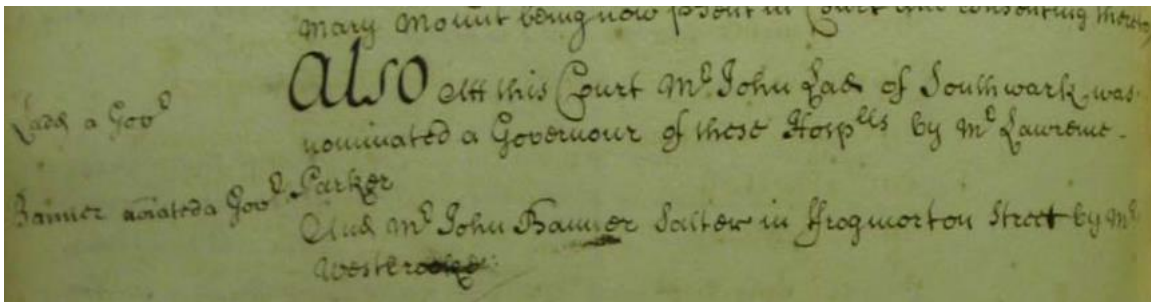 Mary Mount being now p'sent in Court and consenting thereto
Also Att this Court Mr. John Lad of Southwark was
Ladd a Govr
nominated a Governour of these Hosplls by Mr Lawrence
Parker
Banner noiated a Govr
And Mr John Banner Salter in ffrogmorton Street by Mr
Westbrooke